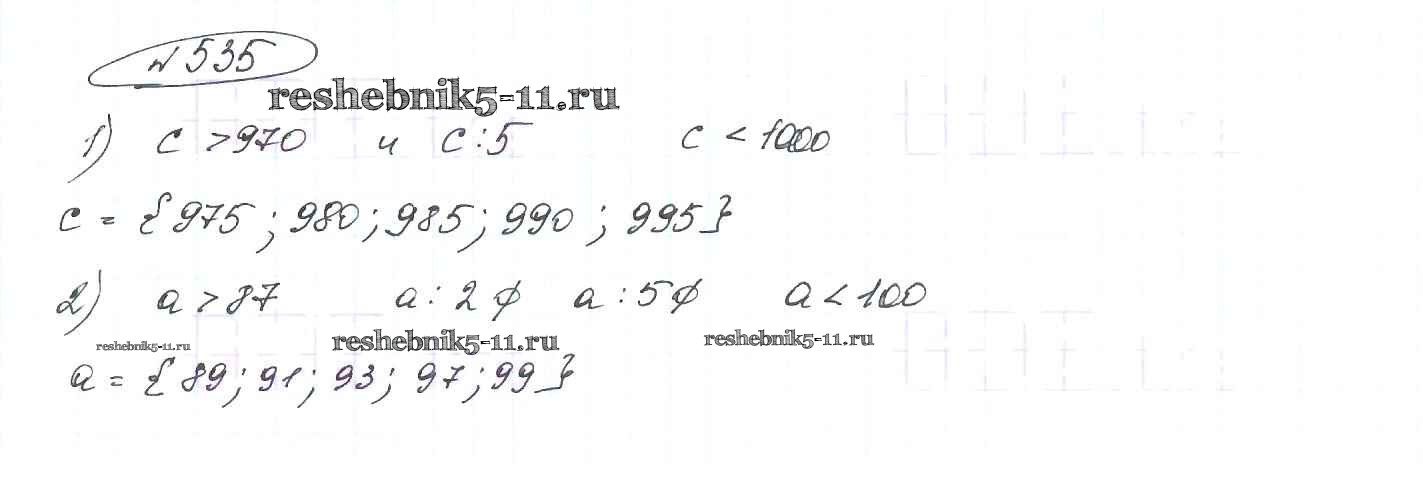 № 535
reshebnik5-11.ru
1) c > 970 и c : 5 c < 1000
c = {975 ; 980 ; 985 ; 990 ; 995}
2) a > 87 a : 2 ∅ a : 5 ∅ a < 100
reshebnik5-11.ru reshebnik5-11.ru reshebnik5-11.ru
a = {89 ; 91 ; 93 ; 97 ; 99}